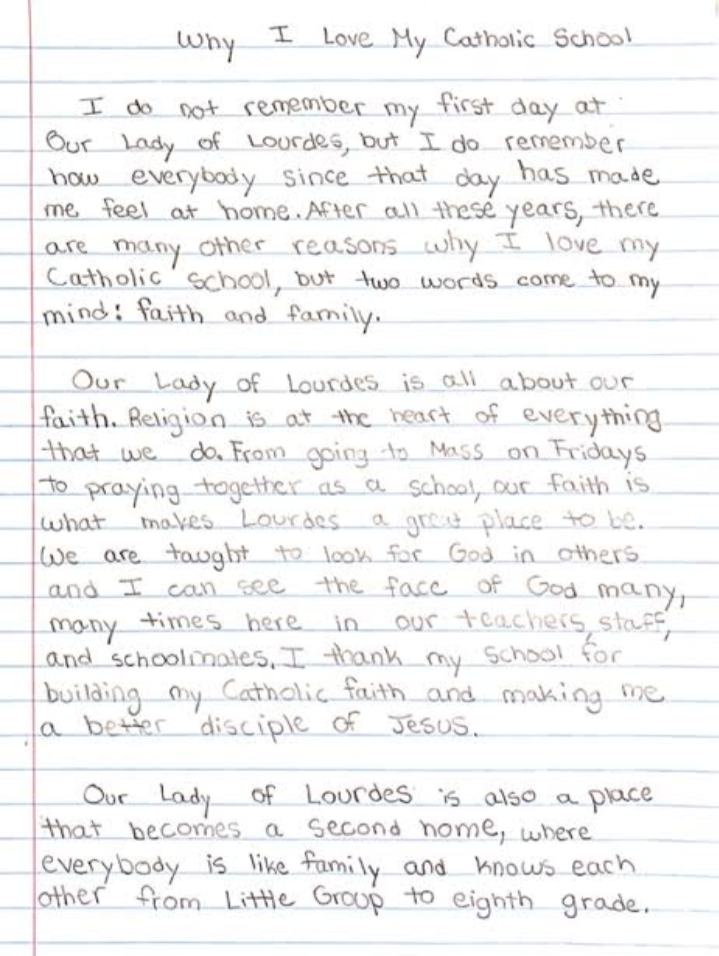 Why I Love My Catholic School
I do not remember my first day at
Our Lady of Lourdes, but I do remember
how everybody since that day has made
me feel at home. After all these years, there
are many other reasons why I love my
Catholic school, but two words come to my
mind: faith and family.
Our Lady of Lourdes is all about our
faith. Religion is at the heart of everything
that we do. From going to Mass on Fridays
to praying together as a school, our faith is
what makes Lourdes a great place to be.
We are taught to look for God in others
and I can see the face of God many,
many times here in our teachers, staff,
and schoolmates. I thank my school for
building my Catholic faith and making me
a better disciple of Jesus.
Our Lady of Lourdes is also a place
that becomes a second home, where
everybody is like family and knows each
other from Little Group to eighth grade.